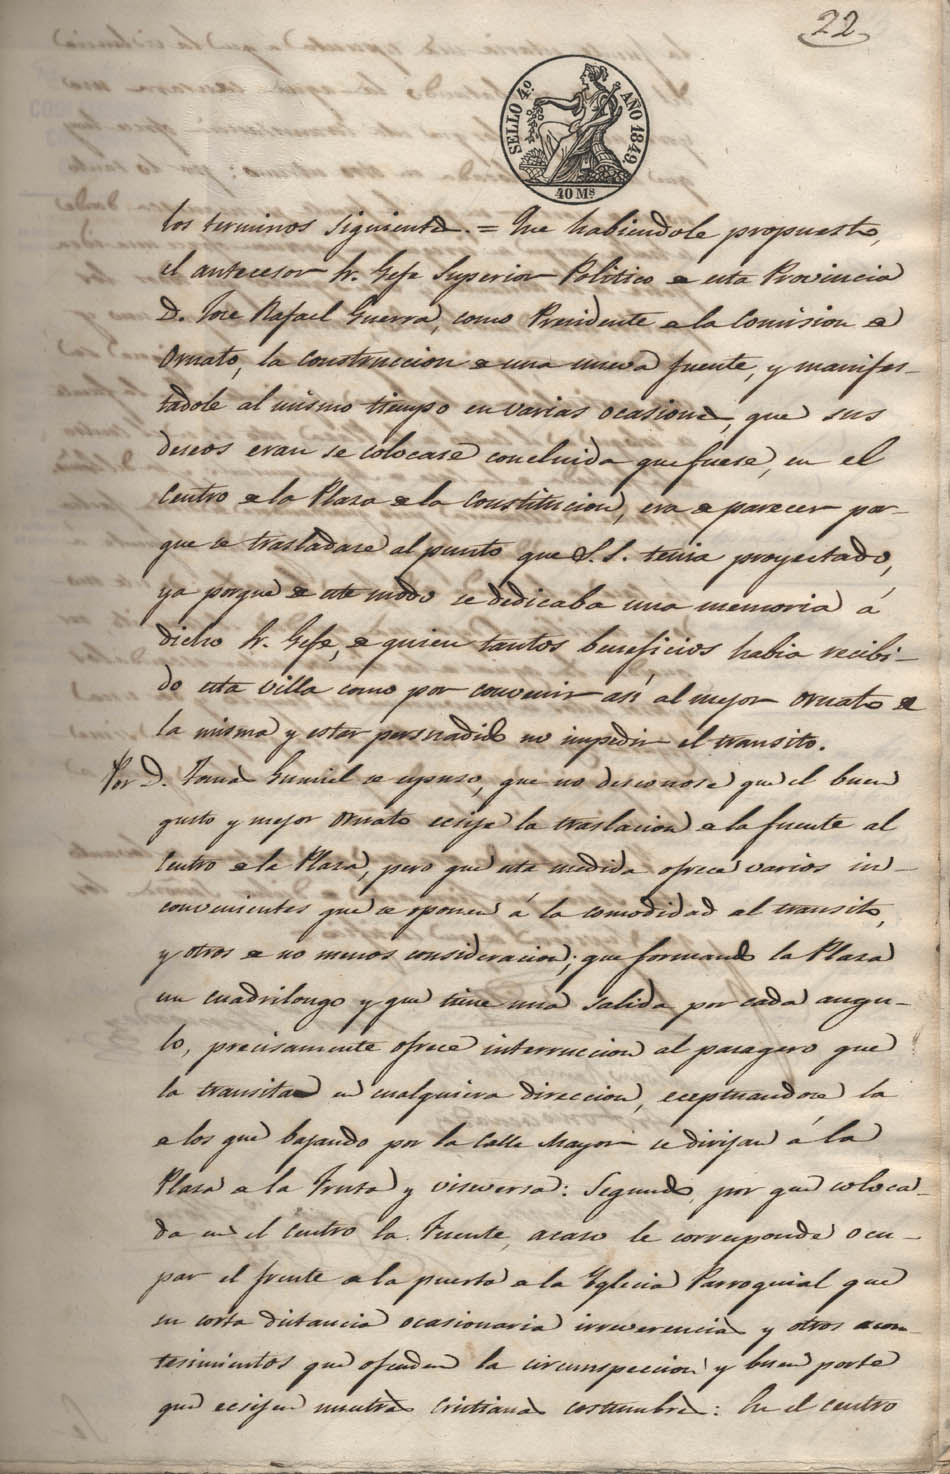 22
SELLO 4.º AÑO 1849.
40 Ms
los terminos siguientes. = Que habiendole propuesto,
el antecesor Sr. Gefe Superior Politico de esta Provincia
D. Jose Rafael Guerra, como Presidente de la Comision de
Ornato, la construccion de una nueva fuente, y manifes-
tadole al mismo tiempo en varias ocasiones, que sus
deseos eran se colocase concluida que fuese, en el
Centro de la Plaza de la Constitucion, era de parecer por-
que se trasladase al punto que S.S. tenia proyectado,
ya porque de este modo se dedicaba una memoria á
dicho Sr. Gefe, de quien tantos beneficios habia recibi-
do esta villa como por convenir asi al mejor ornato de
la misma y estar persuadido no impedir el transito.
Por D. Tomas Gumiel se espuso, que no desconose que el buen
gusto y mejor ornato ecsije la traslacion de la fuente al
Centro de la Plaza, pero que esta medida ofrece varios in-
convenientes que se oponen á la comodidad al transito,
y otros de no menos consideracion; que formando la Plaza
un cuadrilongo y que tiene una salida por cada angu-
lo, precisamente ofrece interruccion al pasagero que
la transita en cualquiera direccion, eceptuandose la
de los que bajando por la Calle Mayor se dirijan á la
Plaza de la Fruta y viseversa: Segundo, por que coloca-
da en el Centro la Fuente, acaso le corresponde ocu-
par el frente de la puerta de la Yglecia Parroquial que
su corta distancia ocasionaria irreverencias y otros acon-
tesimientos que ofenden la circunspeccion y buen porte
que ecsijen nuestras Cristianas costumbres: En el centro